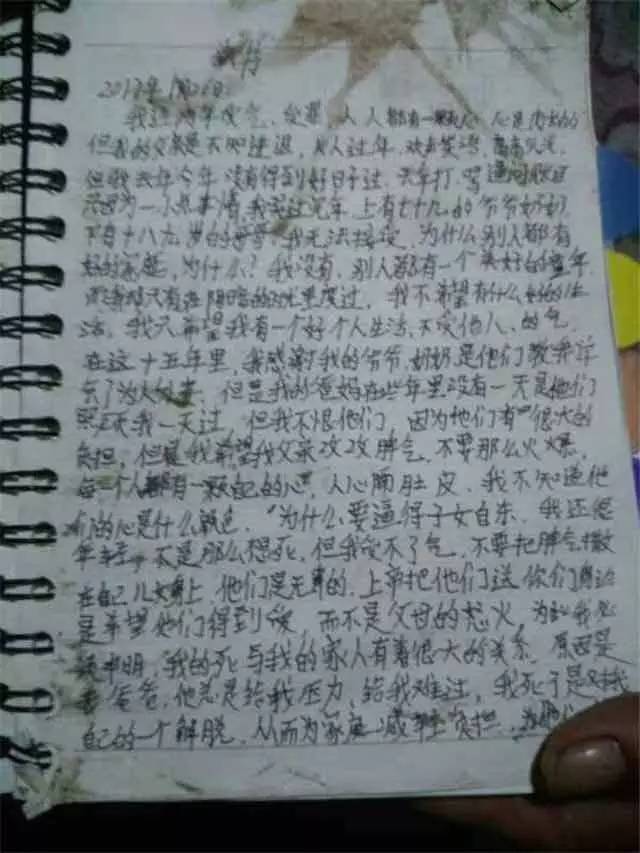 2017年1月26日
我这两年受气、受罪 人人都有一颗 心 心是肉长的
但我的父亲是不知进退 别人过年 欢声笑语 高高兴兴
但我去年今年 没有得到好日子过 天天打 骂
只因为一小点事情 我 上有七十九 的爷爷奶奶
下有十八九岁的哥哥 我无法接受 为什么别人都有
好的家庭，为什么？我没有，别人都有一个美好的童年
只有在阴暗的 里度过，我不希望有什么好的生
活，我只希望我有一个好个人生活，不受他人、的气
在这十五年里，我感谢我的爷爷，奶奶是他们教我学
会了为人处事，但是我的爸妈在些年里没有一天是他们
我一天过，但我不恨他们，因为他们有 很大的
负担，但是我希望我父亲改改脾气，不要那么火爆，
每一个人都有一颗自己的心，人心隔肚皮，我不知道他
们的心是什么颜色，为什么要逼得子女自杀，我还很
年轻，不是那么想死，但我受不了气，不要把脾气撒
在自己儿女身上，他们是无辜的，上帝把他们送你们身边
是希望他们得到 ，而不是父母的怒火，为此我
申明，我的死与我的家人有着很大的关系，原因是
爸爸，他总是给我压力，给我难过，我死于是对我
自己的一个解脱，从而为家庭减轻负担，